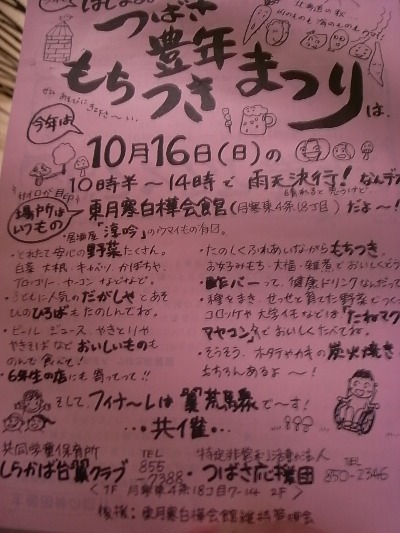 はじまるよ
北海道の秋
つばさ
豊年
もちつきまつり
は、
ぜひ あそびにきて下さ〜い。
今年は
10月16日(日)の
10時半〜14時で 雨天決行! なんデ
サイロが目印
場所はいつもの
東月寒白樺会館(月寒東4条18丁目)だよ〜!
・居酒屋「淳吟」のウマイもの有。
・とれたて安心の野菜たくさん。
白菜 大根 キャベツ かぼちゃ
ブロッコリー ヤーコン などなど。
・こどもに人気のだがしやとあそ
びのひろばもたのしんでね。
・ビール ジュース やきとりや
やきそばなどおいしいものも
のんで食べて!
・6年生の店にも寄ってって!!
・たのしくふれあいながらもちつき。
お女子みもち・大福・雑煮でおいしくどう
・酢バーって、健康ドリンクなんだって
・種をまき、せっせと育てた野菜でつく
コロッケや大学イモなどは「たねマク
マヤコン」でおいしくたべてね。
・そうそう、ホタテやカキの炭火焼き
もちろんあるよ〜!
そして、フィナーレは"翼"荒馬象で〜す!
・・・共催・・・
共同学童保育所
しらかば台"翼"クラブ
TEL
855
-7388
・
特定非営利活動法人
つばさ応援団
TEL
850-2346
<1F 月寒東4条18丁目7-14 2F>
後援:東月寒白樺会館維持管理会